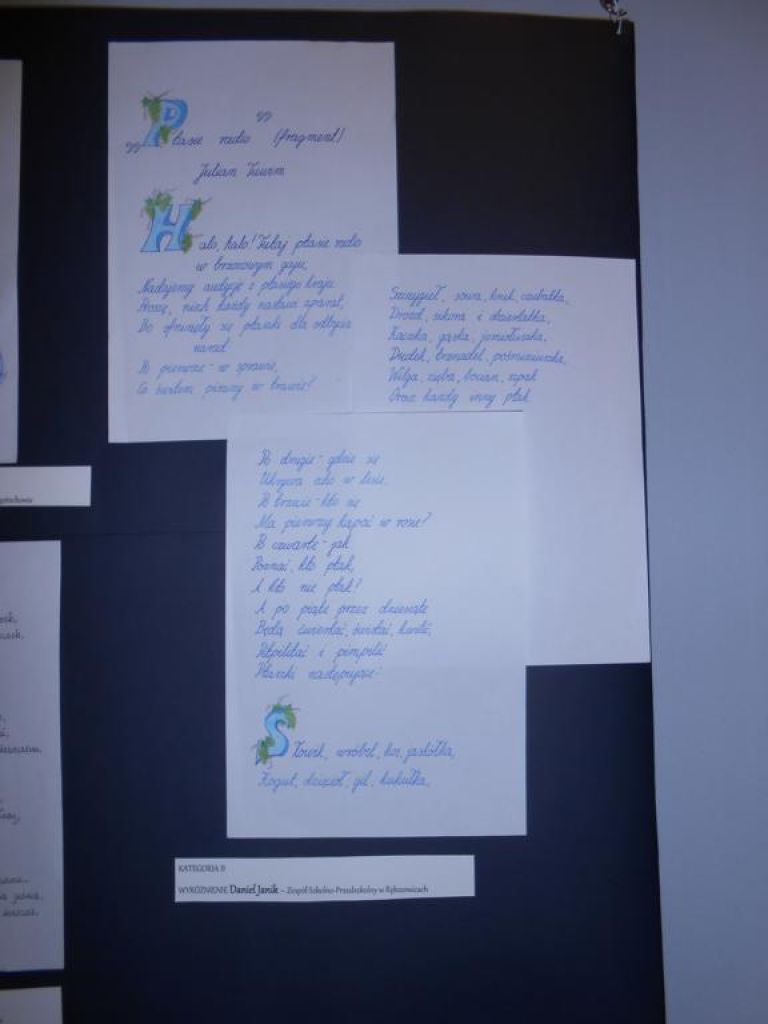 „Ptasie radio” (fragment)
Julian Tuwim
Halo, halo! Tutaj ptasie radio
w brzozowym gaju,
Nadajemy audycję z ptasiego kraju.
Proszę, niech każdy nastawi aparat,
Bo sfrunęły się ptaszki dla odbycia
narad:
Po pierwsze - w sprawie,
Co świtem piszczy w trawie?
Po drugie - gdzie się
Ukrywa echo w lesie,
Po trzecie - kto się
Ma pierwszy kąpać w rosie?
Po czwarte - jak
Poznać, kto ptak,
A kto nie ptak?
A po piąte przez dziesiąte
Będą ćwierkać, świstać, kwilić,
Pitpilitać i pimpilić
Ptaszki następujące:
Słowik, wróbel, kos, jaskółka,
Kogut, dzięcioł, gil, kukułka,
Szczygieł, sowa, kruk, czubatka,
Drozd, sikora i dzierlatka,
Kaczka, gąska, jemiołuszka,
Dudek, trznadel, pośmieciuszka,
Wilga, zięba, bocian, szpak
Oraz każdy inny ptak.
KATEGORIA II
WYRÓŻNIENIE Daniel Janik – Zespół Szkolno-Przedszkolny w Rększowicach